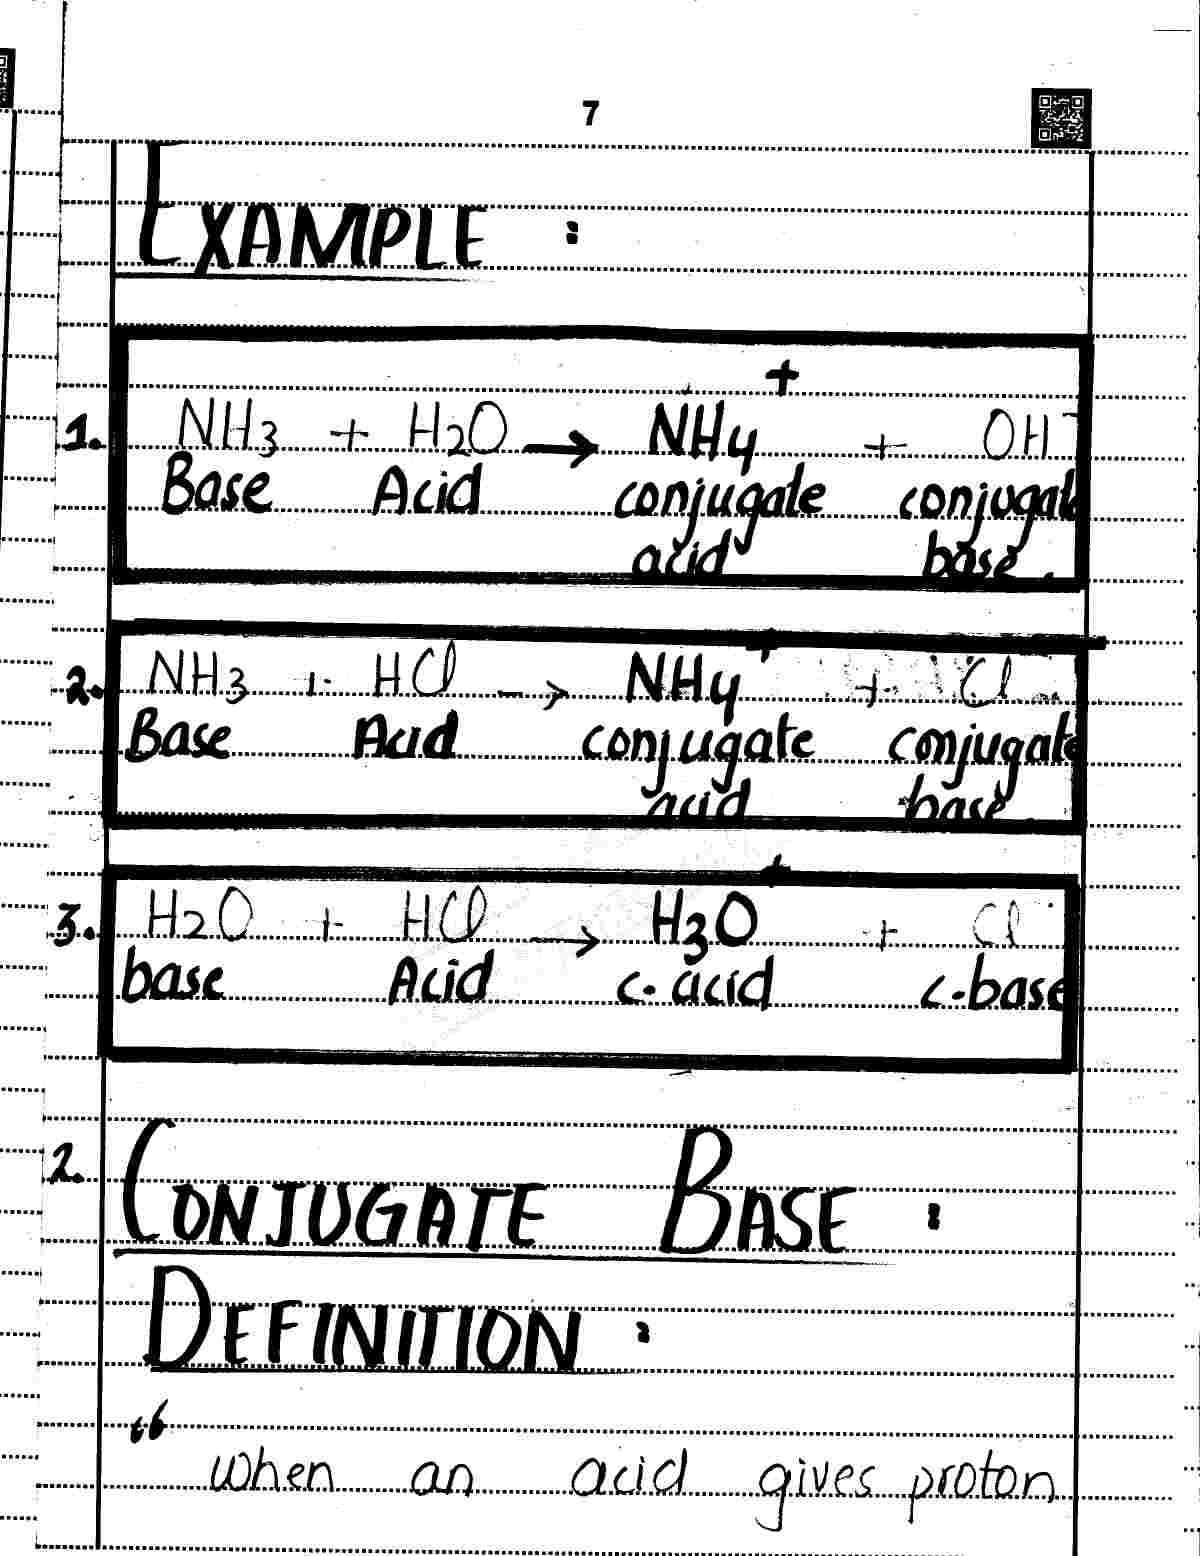 7
EXAMPLE :
+
1. NH3 + H2O → NH4 + OH-
Base Acid conjugate conjugate
acid base.
+
2. NH3 + HCl → NH4 + Cl
Base Acid conjugate conjugate
acid base.
+
3. H2O + HCl → H3O + Cl-
base Acid c.acid c.base
2. CONJUGATE BASE :
DEFINITION :
“
when an acid gives proton